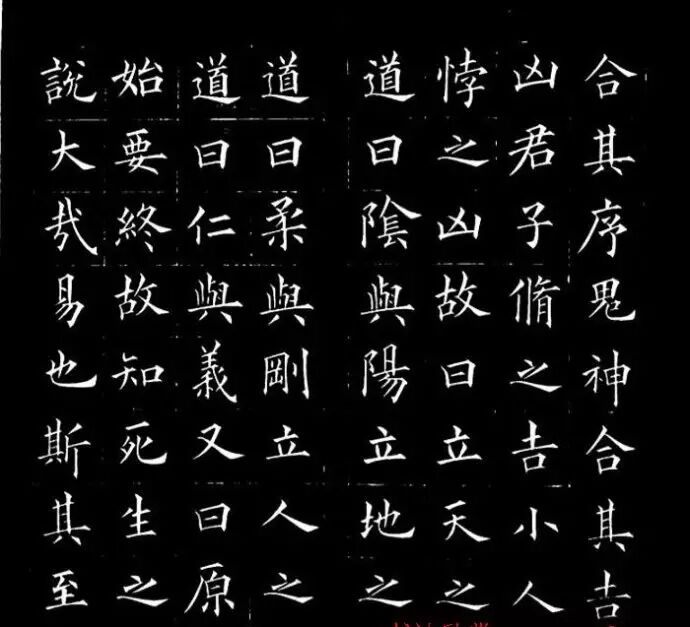 合其序鬼神合其吉
凶君子脩之吉小人
悖之凶故曰立天之
道曰陰與陽立地之
道曰柔與剛立人之
道曰仁與義又曰原
始要終故知死生之
說大哉易也斯其至